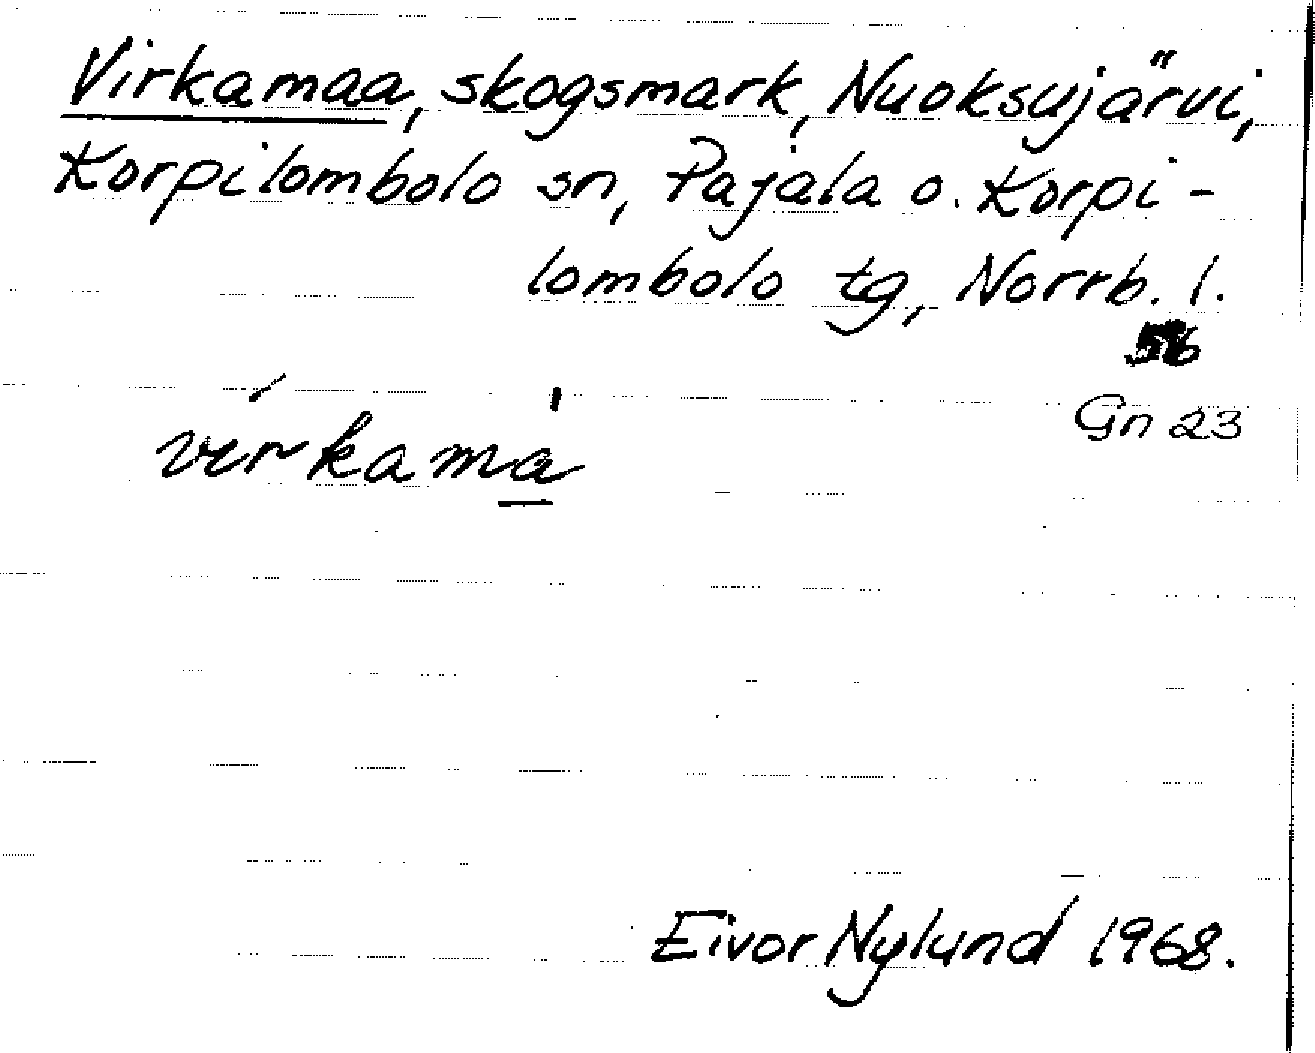 Virkamaa, skogsmark, Nuoksujärvi,
Korpilombolo sn, Pajala o. Korpi-
lombolo tg, Norrb. l.
56
Gn 23
vírkama̲̍
Eivor Nylund 1968.